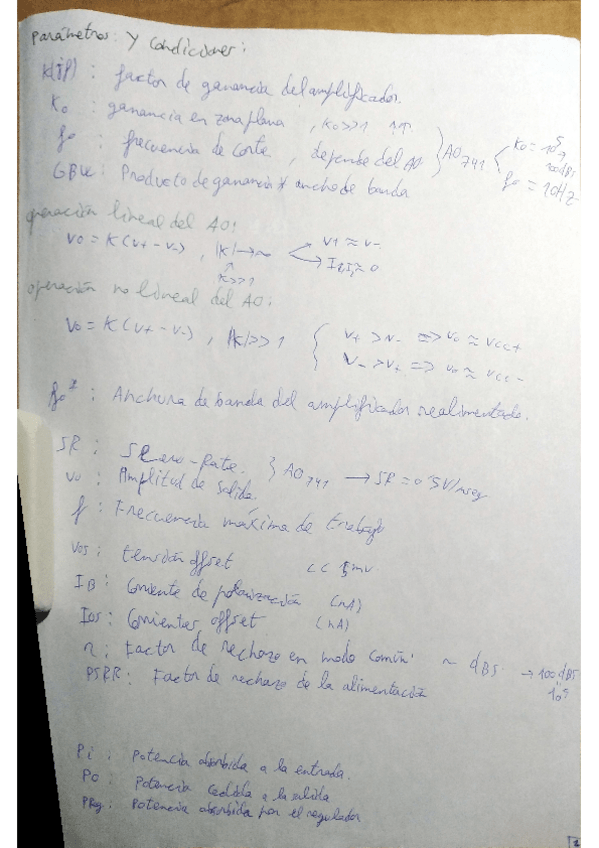 Parámetros y condiciones:
K(jf) : factor de ganancia del amplificador.
K0 : ganancia en zona plana , K0>>1 ↑↑. K0 = 10^5
fo : frecuencia de corte, depende del AO. } AO741 100dBs
GBW : Producto de ganancia * ancho de banda fo = 10Hz
operación lineal del AO:
Vo = K(V+ - V-) , |K|→∞ V+ ≈ V-
K>>1 ≈ 0
operación no lineal del AO:
Vo = K(V+ - V-) , |K|>>1 { V+ > V- => Vo ≈ Vcc+
V- > V+ => Vo ≈ Vcc-
fo* : Anchura de banda del amplificador realimentado.
SR : Slew-Rate. } AO741 → SR = 0'5V/μseg
Vo : Amplitud de salida.
f : Frecuencia máxima de trabajo
Vos : tensión offset mV
IB : Corriente de polarización (nA)
Ios : Corrientes offset (nA)
r : Factor de rechazo en modo común ~ dBs. → 100dBs
PSRR : Factor de rechazo de la alimentación 10^5
Pi : Potencia absorbida a la entrada.
Po : Potencia cedida a la salida
PReg : Potencia absorbida por el regulador
1